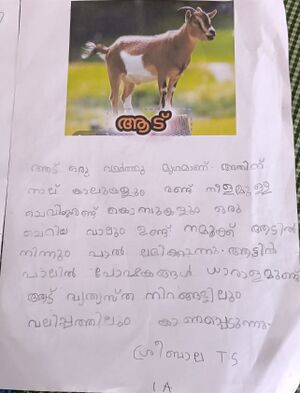 ആട്
ആട് ഒരു വളർത്തു മൃഗമാണ്. അതിന്
നാല് കാലുകളും രണ്ട് നീളമുള്ള
ചെവികളുണ്ട് കൊമ്പുകളും ഒരു
ചെറിയ വാലും ഉണ്ട് നമുക്ക് ആട്ടിൽ
നിന്നും പാൽ ലഭിക്കുന്നു. ആട്ടിൻ
പാലിൽ പോഷകങ്ങൾ ധാരാളമുണ്ട്
ആട് വ്യത്യസ്ത നിറങ്ങളിലും
വലിപ്പത്തിലും കാണപ്പെടുന്നു.
ശ്രീബാല T S
1 A